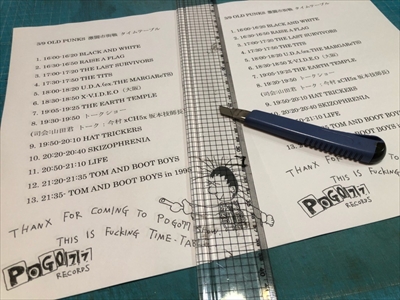 3/9 OLD PUNKS タイムテーブル
1. 16:00-16:20 BLACK AND WHITE
2. 16:30-16:50 RAISE A FLAG
3. 17:00-17:20 THE LAST SURVIVORS
4. 17:30-17:50 THE TITS
5. 18:00-18:20 U.D.A (ex.THE MARGARETS)
6. 18:30-18:50 X-V.I.D.E.O (大阪)
7. 19:05-19:25 THE EARTH TEMPLE
8. 19:30-19:50 トークショー
(司会:山田君 トーク:今村
9. 19:50-20:10 HAT TRICKERS
10. 20:20-20:40 SKIZOPHRENIA
11. 20:50-21:10 LIFE
12. 21:20-21:35 TOM AND BOOT BOYS
13. 21:35- TOM AND BOOT BOYS in 1995
THANX FOR COMING TO POGO77
THIS IS FUCKING TIME-TAB
POGO77
RECORDS
3/9 OLD PUNKS タイムテーブル
1. 16:00-16:20 BLACK AND WHITE
2. 16:30-16:50 RAISE A FLAG
3. 17:00-17:20 THE LAST SURVIVORS
4. 17:30-17:50 THE TITS
5. 18:00-18:20 U.D.A (ex.THE MARGARETS)
6. 18:30-18:50 X-V.I.D.E.O (大阪)
7. 19:05-19:25 THE EARTH TEMPLE
8. 19:30-19:50 トークショー
HAT TRICKERS
SKIZOPHRENIA
LIFE
TOM AND BOOT BOYS
TOM AND BOOT BOYS in
THANX FOR COMING TO POG
THIS IS FUCKING
POGO77
RECORDS